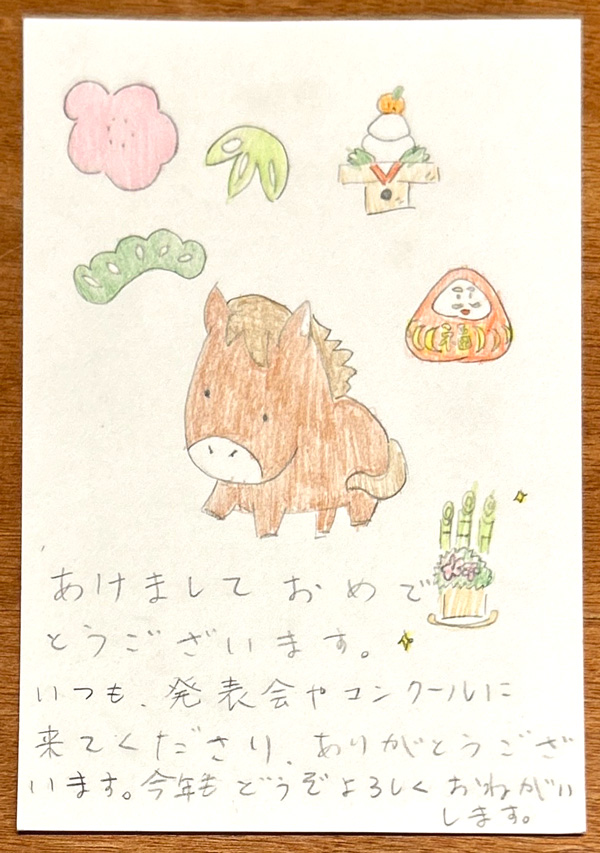 福
あけましておめで
とうございます。
いつも、発表会やコンクールに
来てくださり、ありがとうござ
います。今年もどうぞよろしくおねがい
します。